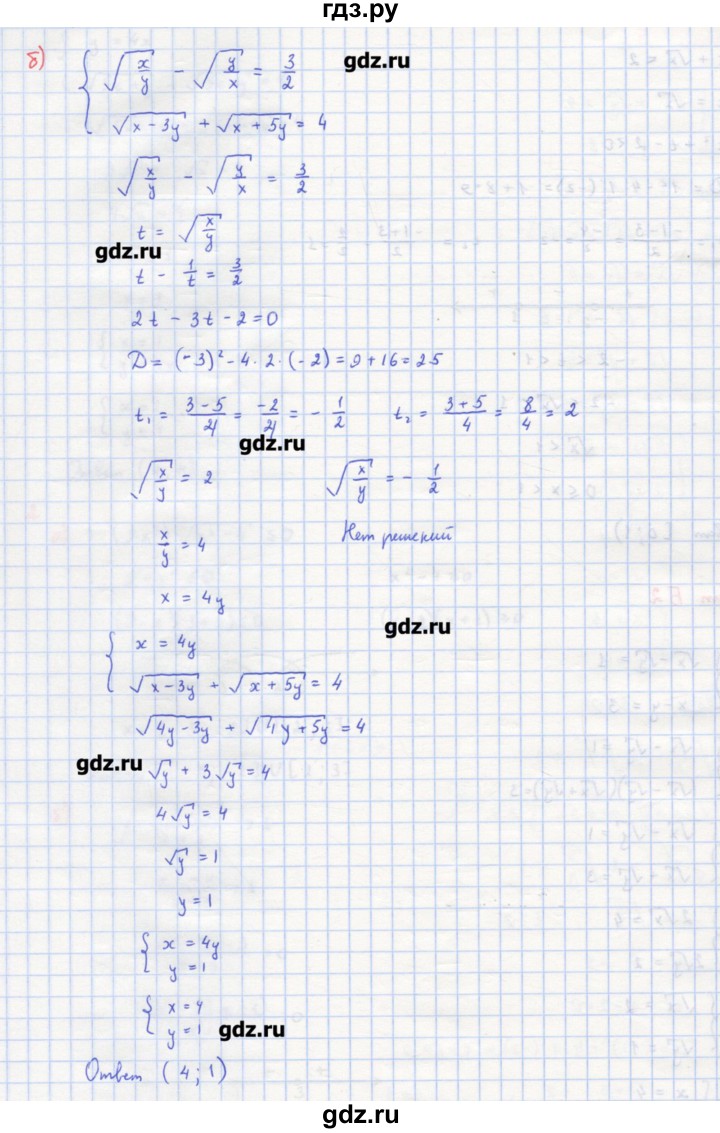 гдз.ру
б) { √(x/y) − √(y/x) = 3/2
gdz.ru
√(x−3y) + √(x+5y) = 4
√(x/y) − √(y/x) = 3/2
t = √(x/y)
gdz.ru
t − 1/t = 3/2
2t − 3t − 2 = 0
D = (−3)² − 4 · 2 · (−2) = 9 + 16 = 25
t₁ = (3−5)/4 = −2/4 = − 1/2 t₂ = (3+5)/4 = 8/4 = 2
gdz.ru
√(x/y) = 2 √(x/y) = − 1/2
x/y = 4 Нет решений
x = 4y
gdz.ru
{ x = 4y
√(x−3y) + √(x+5y) = 4
√(4y−3y) + √(4y+5y) = 4
gdz.ru
√y + 3√y = 4
4√y = 4
√y = 1
y = 1
{ x = 4y
y = 1
{ x = 4
y = 1
gdz.ru
Ответ (4; 1)
gdz.ru